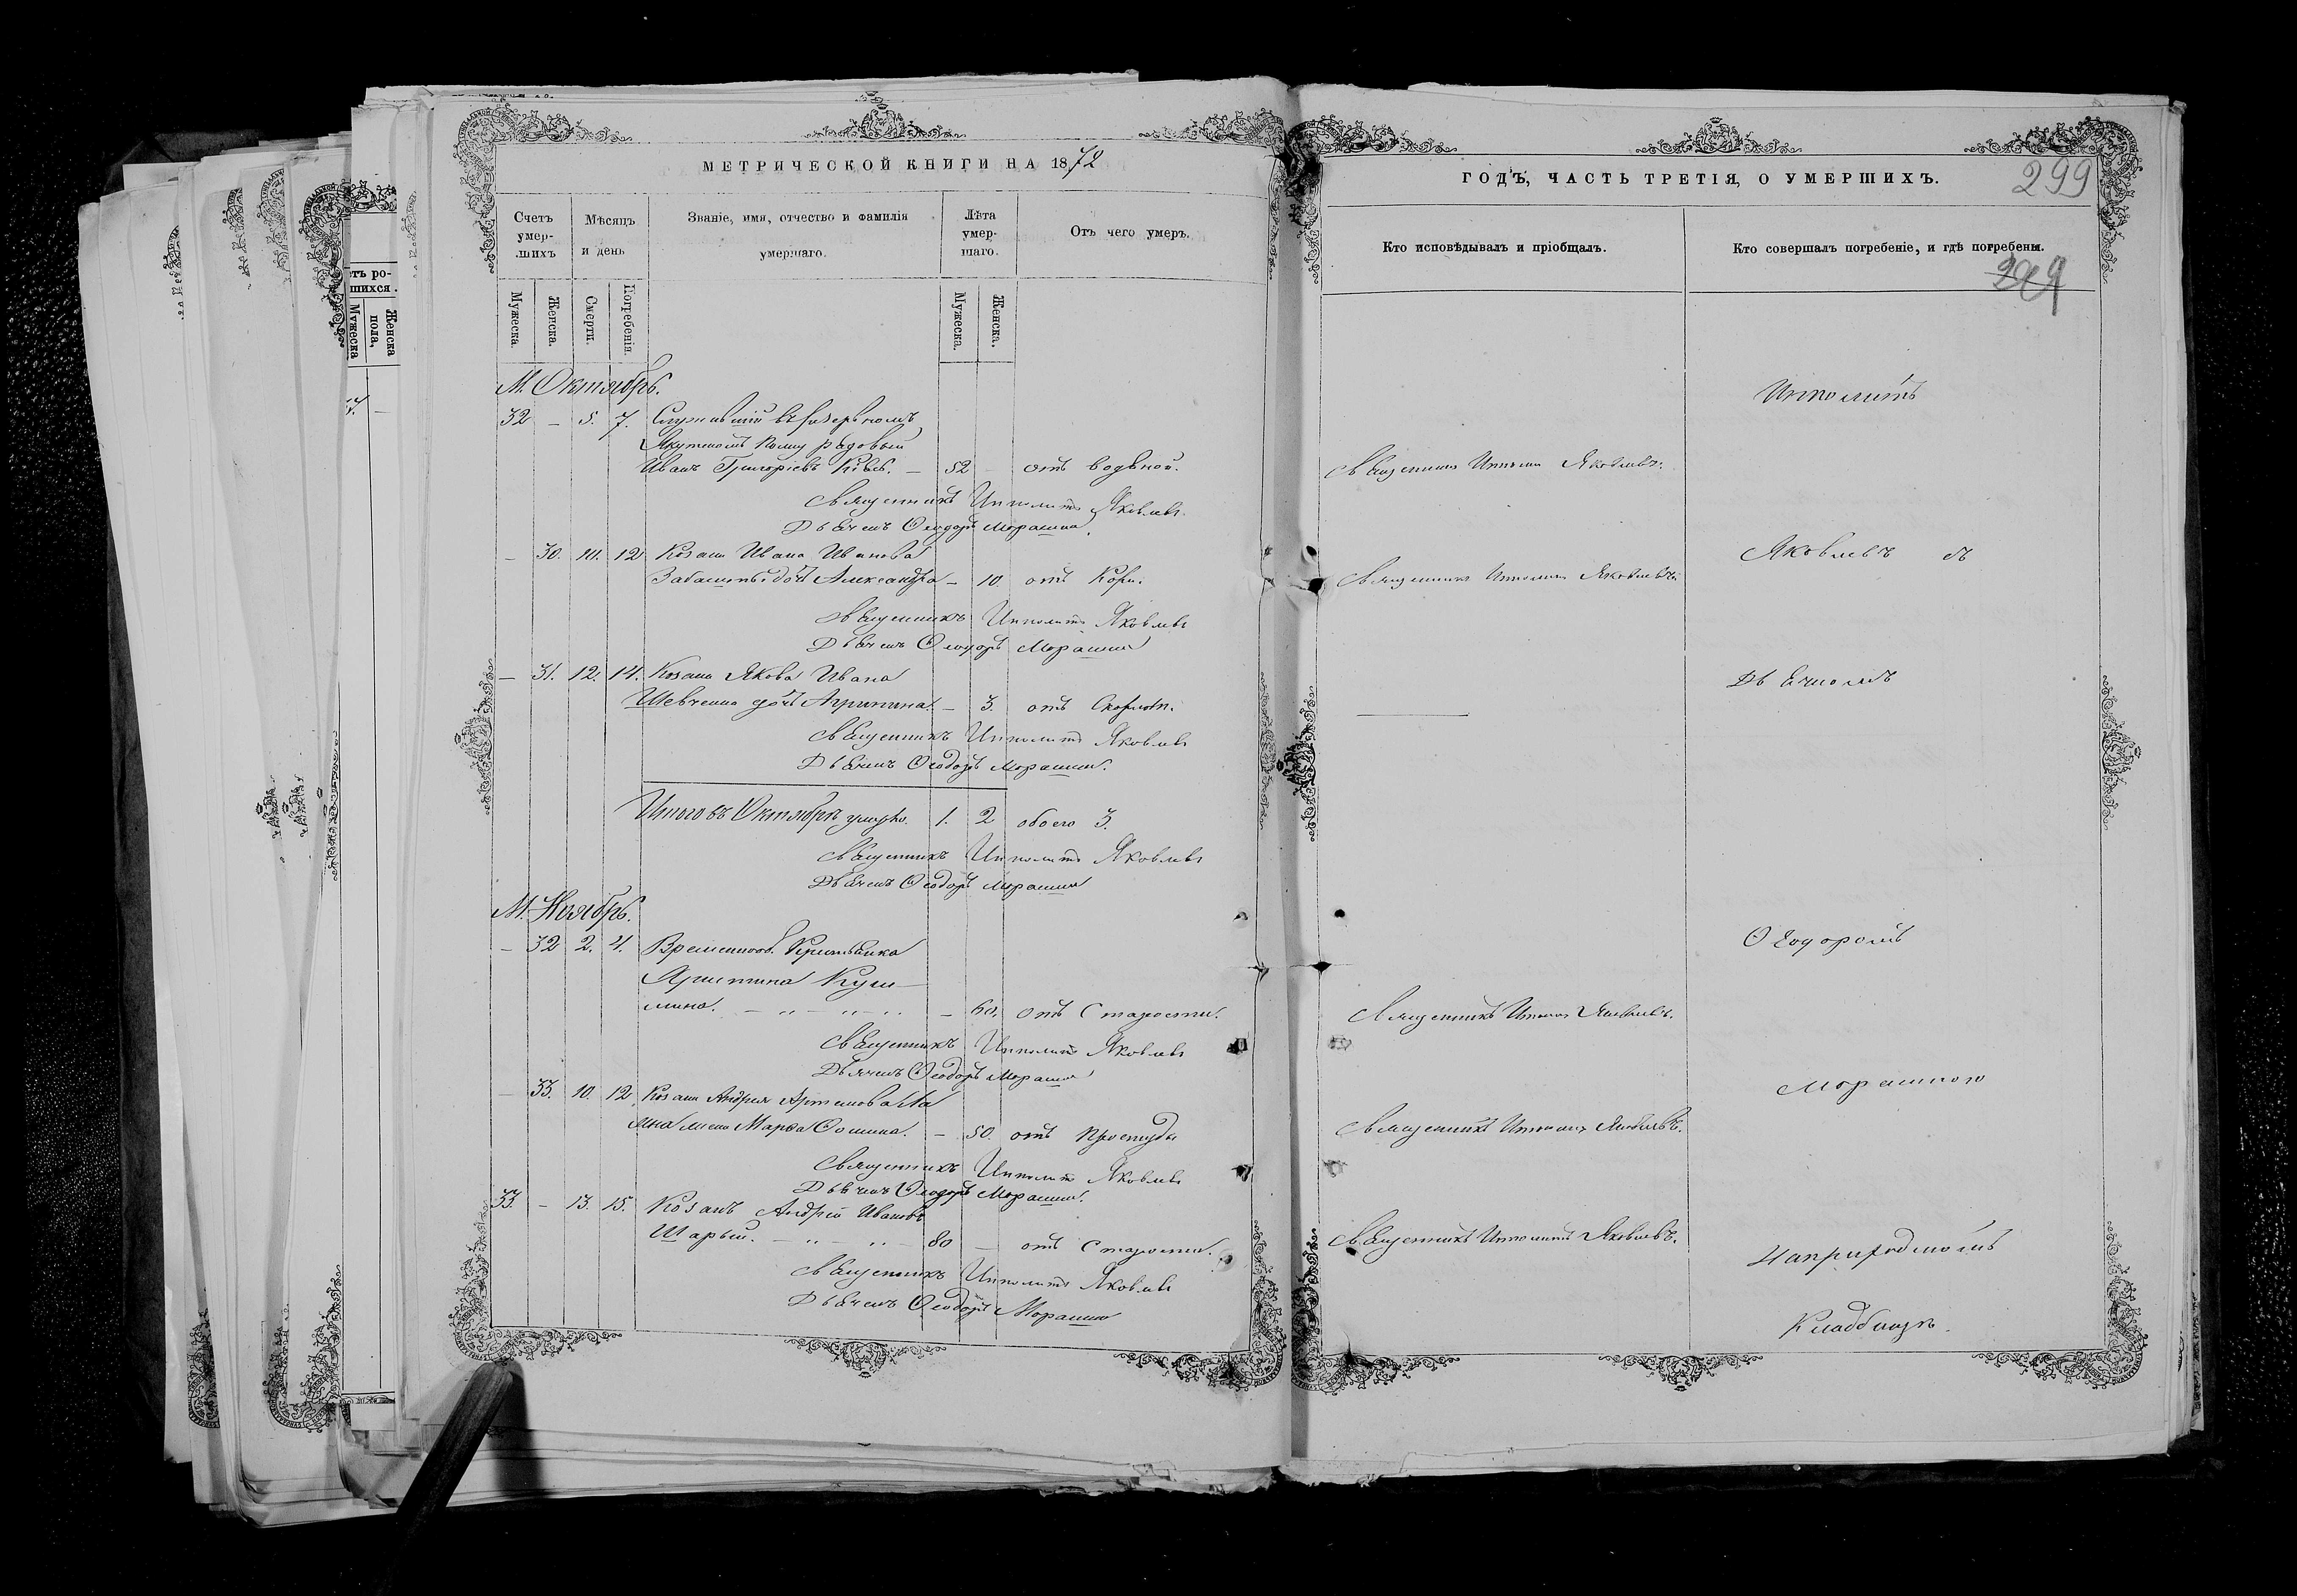 МЕТРИЧЕСКОЙ КНИГИ НА 1872
Счетъ умер-шихъ
Мѣсяцъ и день
Званіе, имя, отчество и фамилія умершаго.
Лѣта умер-шаго.
Отъ чего умеръ.
Мужеска.
Женска.
Смерти.
Погребенія.
Мужеска.
Женска.
М. Октябрь.
32 – 5. 7. Служившій въ резервномъ
Якутскомъ полку рядовый
Иванъ Григоріевъ – 52 – отъ водяной.
Священникъ Ипполитъ Яковлевъ
Дьячекъ Ѳеодоръ
– 30. 10. 12 Козака Ивана Иванова
дочь Александра – 10. отъ Кори.
Священникъ Ипполитъ Яковлевъ
Дьячекъ Ѳеодоръ
– 31. 12. 14. Козака Якова Ивана
Шевченка дочь Агрипина. – 3. отъ
Священникъ Ипполитъ Яковлевъ
Дьячекъ Ѳеодоръ
Итого въ Октябрѣ умерло. 1. 2 обоего 3.
Священникъ Ипполитъ Яковлевъ
Дьячекъ Ѳеодоръ
М. Ноябрь.
– 32 2. 4. Временнооб. Крестьянка
– 60. отъ Старости.
Священникъ Ипполитъ Яковлевъ
Дьячекъ Ѳеодоръ
– 33. 10. 12 Козака Андрея
Ѳомина. – 50. отъ Простуды
Священникъ Ипполитъ Яковлевъ
Дьячекъ Ѳеодоръ
33. – 13. 15. Козакъ Андрей Ивановъ
Шарый. 80 – отъ Старости.
Священникъ Ипполитъ Яковлевъ
Дьячекъ Ѳеодоръ
ГОДЪ, ЧАСТЬ ТРЕТІЯ, О УМЕРШИХЪ.
299
Кто исповѣдывалъ и пріобщалъ.
Кто совершалъ погребеніе, и гдѣ погребены.
Ипполитъ
Священникъ Ипполитъ Яковлевъ.
Яковлевъ съ
Священникъ Ипполитъ Яковлевъ.
Дьячкомъ
Ѳеодоромъ
Священникъ Ипполитъ Яковлевъ.
Священникъ Ипполитъ Яковлевъ.
Священникъ Ипполитъ Яковлевъ.
На приходскомъ
Кладбищѣ.